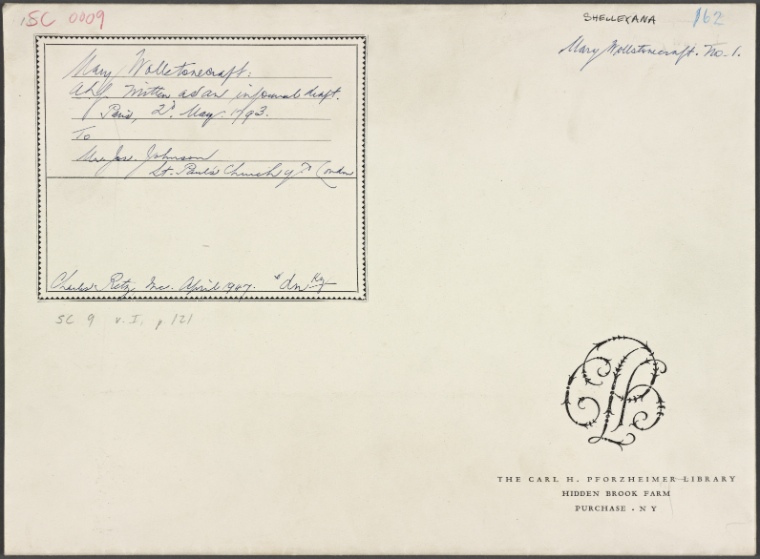 SC 0009
SHELLEYANA
162
Mary Wollstonecraft. No. 1.
Mary Wollstonecraft.
written as an informal draft.
Paris, 2d May 1793.
To
Johnson
St. Paul's Church yd London
Charles Retz, Inc. April 1947.
SC 9 v. I, p 121
THE CARL H. PFORZHEIMER LIBRARY
HIDDEN BROOK FARM
PURCHASE · N Y